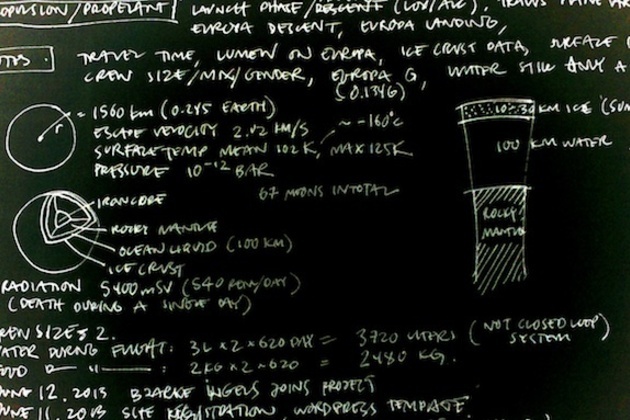 LAUNCH PHASE/DESCENT
EUROPA DESCENT, EUROPA LANDING,
TRAVEL TIME, LUMEN ON EUROPA, ICE CRUST DATA, SURFACE
CREW SIZE/MIX/GENDER, EUROPA G, WATER STILL
(0.134G)
= 1560 km (0.245 EARTH)
ESCAPE VELOCITY 2.02 KM/S
SURFACE TEMP MEAN 102 K, MAX 125K
~ -160°C
PRESSURE 10-12 BAR
r
67 MOONS IN TOTAL
IRON CORE
ROCKY MANTLE
OCEAN LIQUID (100 KM)
ICE CRUST
KM ICE
100 KM WATER
ROCKY
MANTLE
RADIATION 5400 mSV (540 REM/DAY)
(DEATH DURING A SINGLE DAY)
SIZE = 2.
DURING FLIGHT: 3L x 2 x 620 DAY = 3720 LITERS (NOT CLOSED LOOP)
SYSTEM
: 2 KG x 2 x 620 = 2480 KG.
JUNE 12. 2013 BJARKE INGELS JOINS PROJECT
JUNE 11. 2013 SITE REGISTRATION, WORDPRESS TEMPLATE